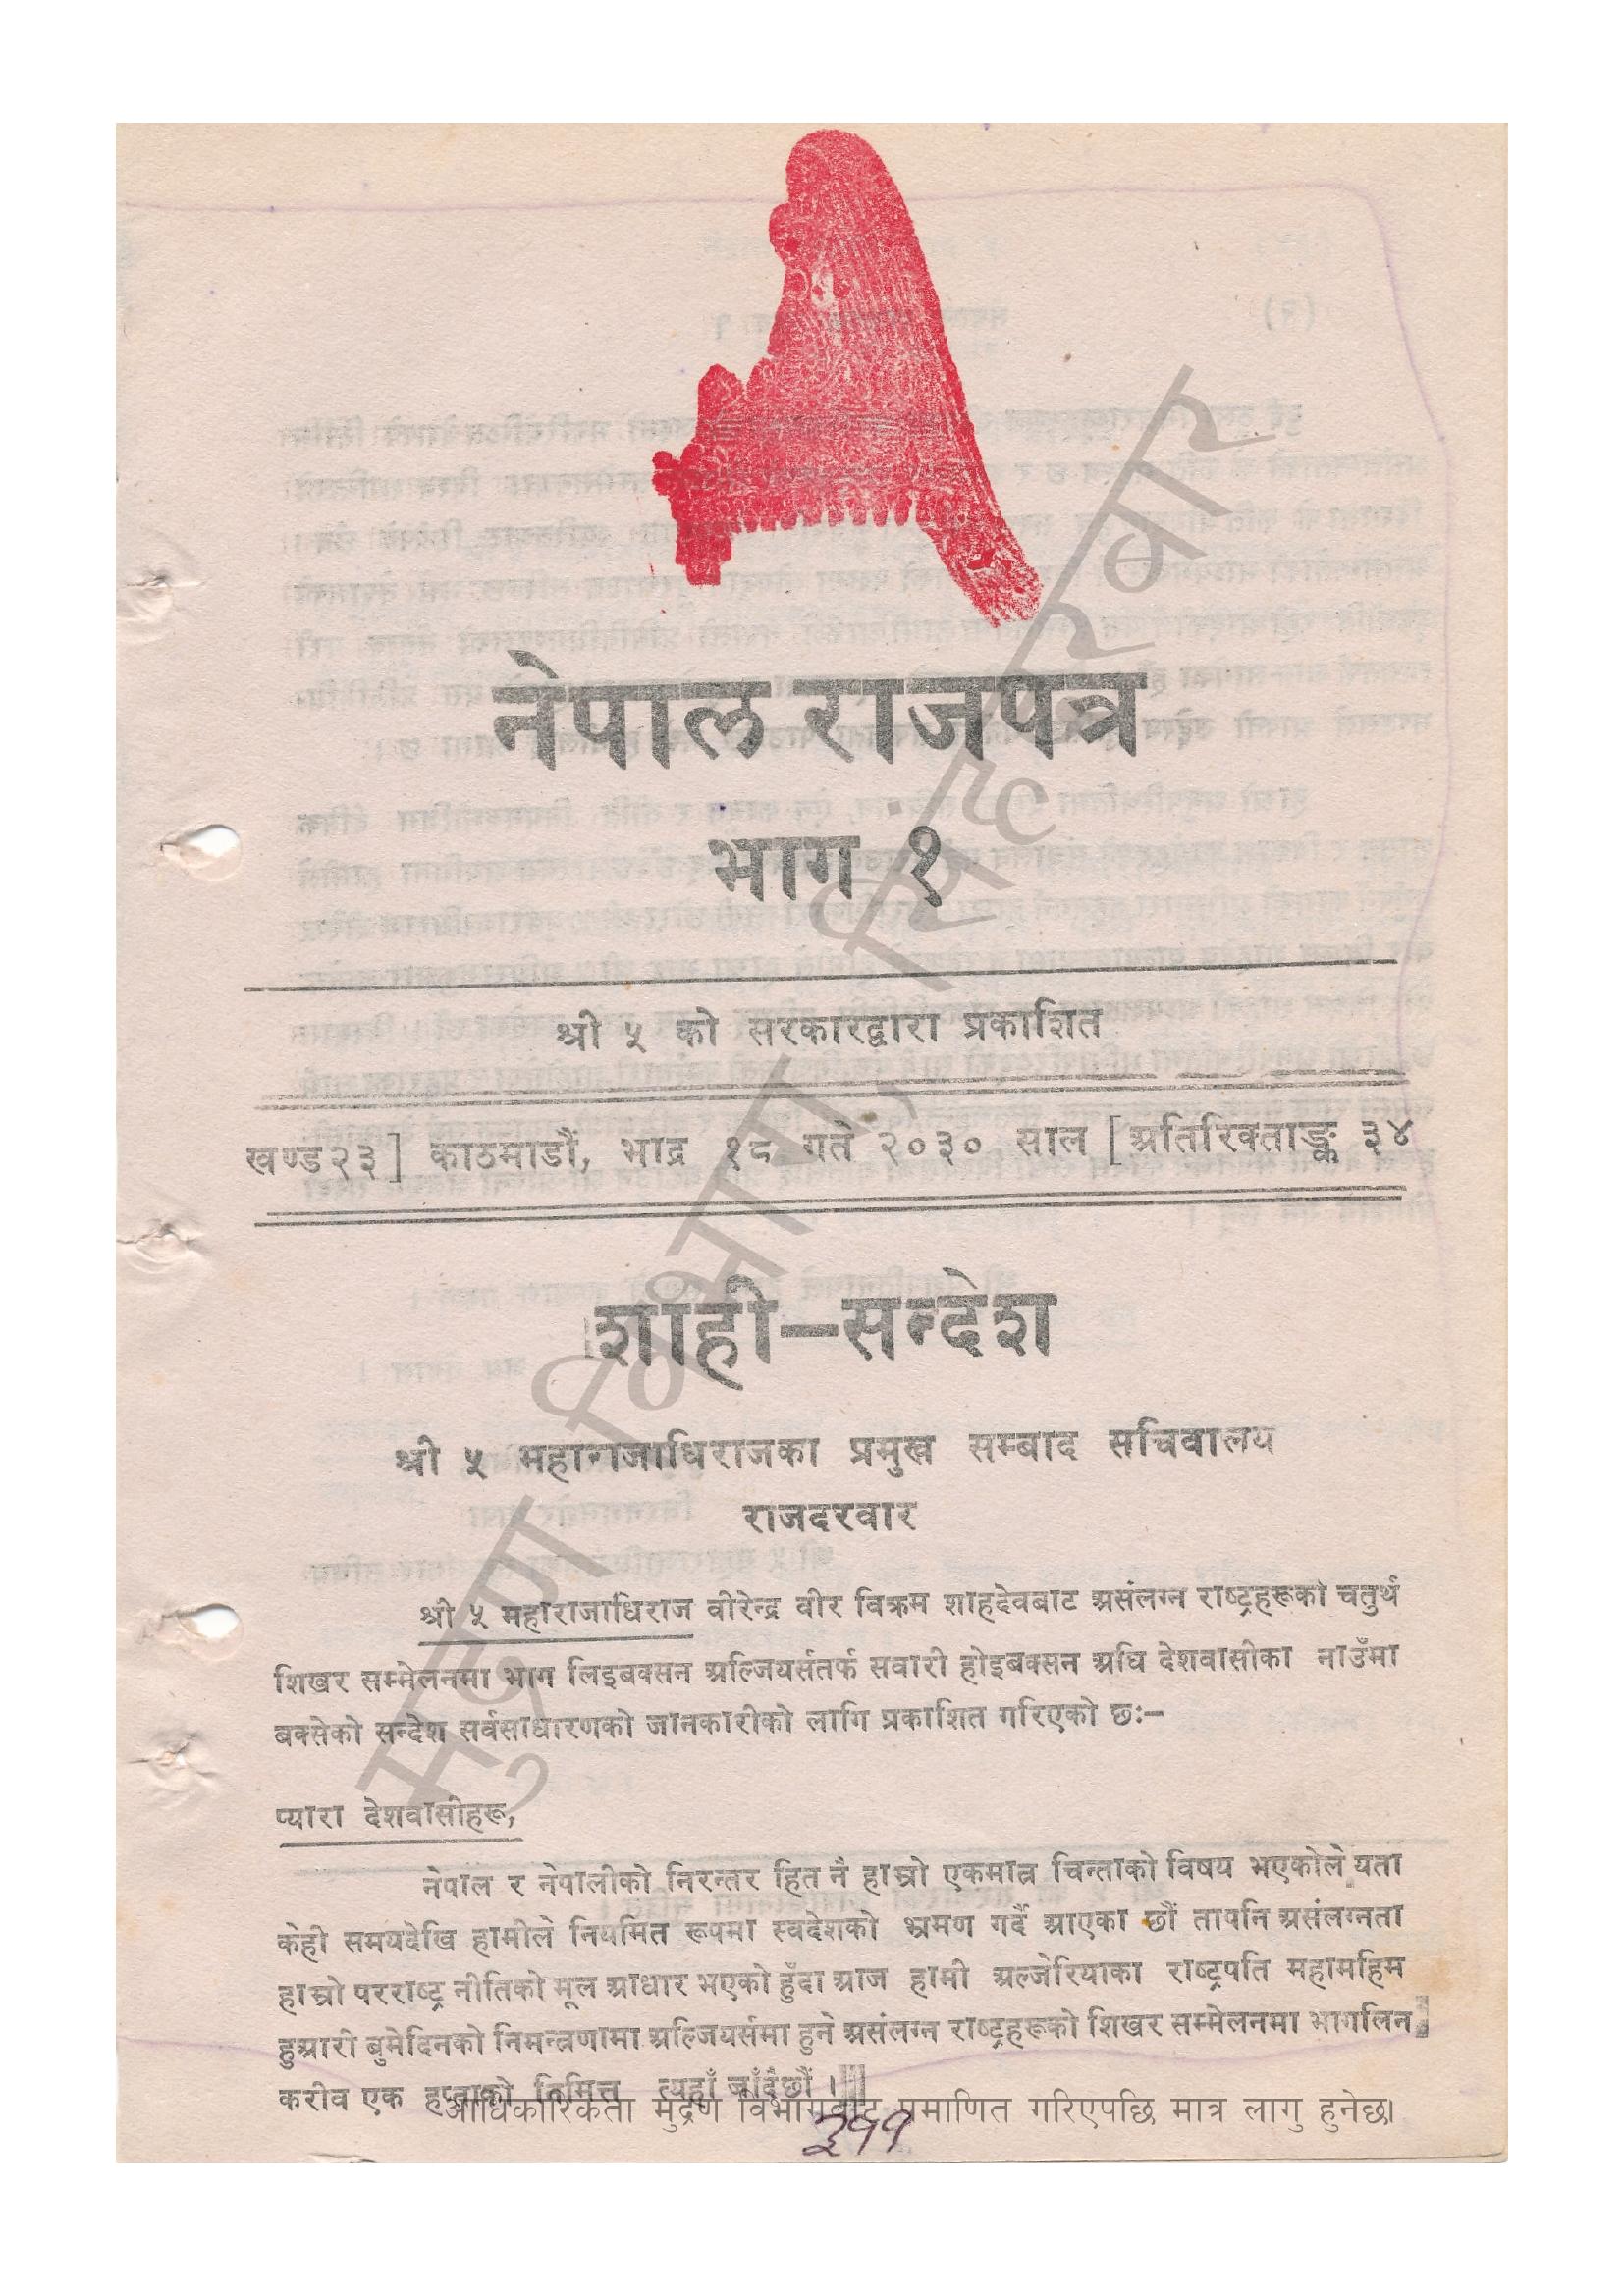 नेपाल राजपत्र
भाग १
श्री ५ को सरकारद्वारा प्रकाशित
खण्ड२३] काठमाडौं, भाद्र १८ गते २०३० साल [अतिरिक्ताङ्क ३४
शाही—सन्देश
श्री ५ महाराजाधिराजका प्रमुख सम्बाद सचिवालय
राजदरवार
श्री ५ महाराजाधिराज वीरेन्द्र वीर विक्रम शाहदेवबाट असंलग्न राष्ट्रहरूको चतुर्थ
शिखर सम्मेलनमा भाग लिइबक्सन अल्जियर्सतर्फ सवारी होइबक्सन अघि देशवासीका नाउँमा
बक्सेको सन्देश सर्वसाधारणको जानकारीको लागि प्रकाशित गरिएको छः—
प्यारा देशवासीहरू,
नेपाल र नेपालीको निरन्तर हित नै हाम्रो एकमात्र चिन्ताको विषय भएकोले यता
केही समयदेखि हामीले नियमित रूपमा स्वदेशको भ्रमण गर्दै आएका छौं तापनि असंलग्नता
हाम्रो परराष्ट्र नीतिको मूल आधार भएको हुँदा आज हामी अल्जेरियाका राष्ट्रपति महामहिम
हुआरी बुमेदिनको निमन्त्रणामा अल्जियर्समा हुने असंलग्न राष्ट्रहरूको शिखर सम्मेलनमा भागलिन
करीव एक हप्ताको निमित्त त्यहाँ जाँदैछौं ।
आधिकारिकता मुद्रण विभागबाट प्रमाणित गरिएपछि मात्र लागु हुनेछ।
३११
मुद्रण विभाग, सिंहदरवार